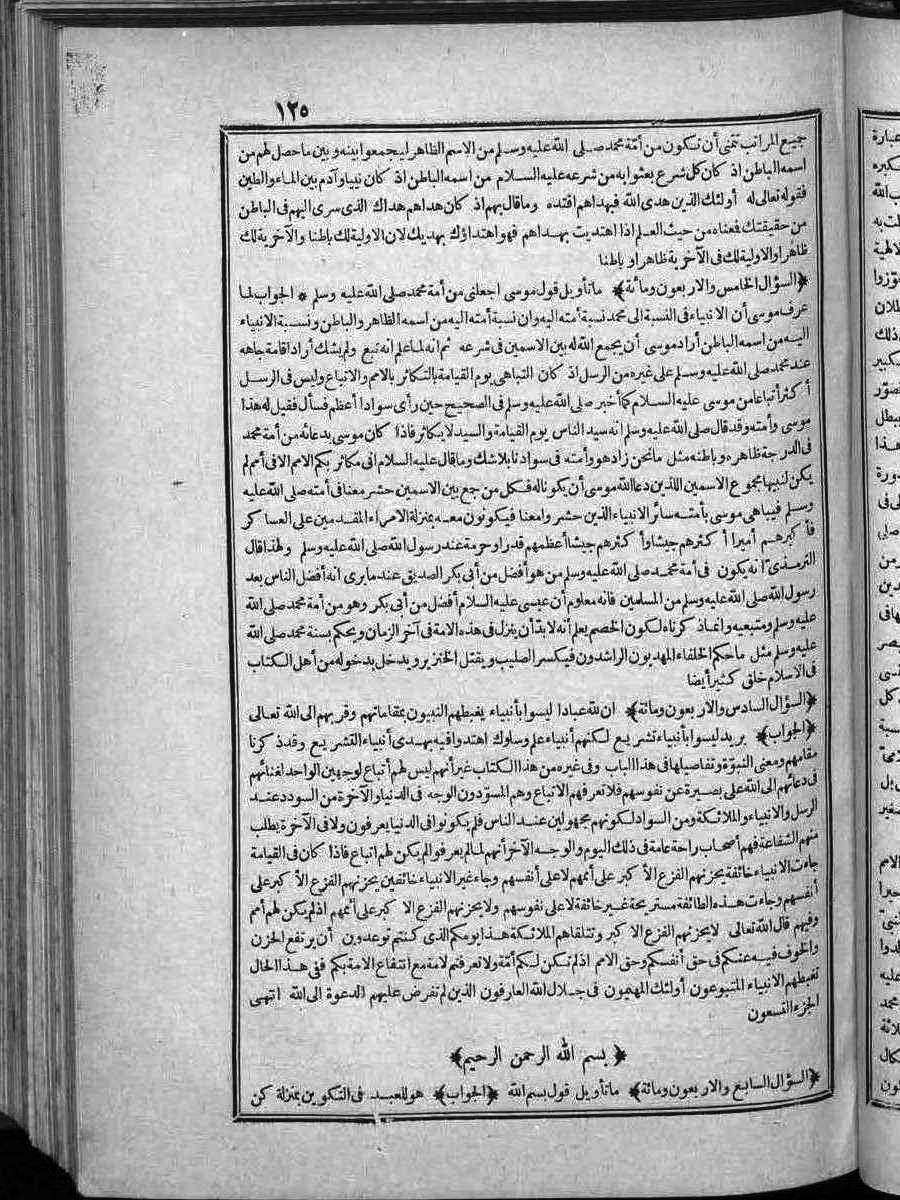 ١٢٥
جميع المراتب تمنى أن تكون من أمة محمد صلى الله عليه وسلم من الاسم الظاهر ليجمعوا بينه وبين ما حصل لهم من
اسمه الباطن اذ كان كل شرع بعثوا به من شرعه عليه السلام من اسمه الباطن اذ كان نبيا وآدم بين الماء والطين
فقوله تعالى له أولئك الذين هدى الله فبهداهم اقتده وما قال بهم اذ كان هداهم هداك الذى سرى اليهم فى الباطن
من حقيقتك فمعناه من حيث العلم اذا اهتديت بهداهم فهو اهتداؤك بهديك لان الاولية لك باطنا والآخرية لك
ظاهرا والاولية لك فى الآخرية ظاهرا وباطنا
﴿السؤال الخامس والاربعون ومائة﴾ ما تأويل قول موسى اجعلنى من أمة محمد صلى الله عليه وسلم * الجواب لما
عرف موسى أن الانبياء فى النسبة الى محمد نسبة أمته اليه وان نسبة أمته اليه من اسمه الظاهر والباطن ونسبة الانبياء
اليه من اسمه الباطن أراد موسى أن يجمع الله له بين الاسمين فى شرعه ثم انه لما علم انه تبع ولم يشك أراد اقامة جاهه
عند محمد صلى الله عليه وسلم على غيره من الرسل اذ كان التباهى يوم القيامة بالتكاثر بالامم والاتباع وليس فى الرسل
أكثر أتباعا من موسى عليه السلام كما أخبر صلى الله عليه وسلم فى الصحيح حين رأى سوادا أعظم فسأل فقيل له هذا
موسى وأمته وقد قال صلى الله عليه وسلم انه سيد الناس يوم القيامة والسيد لا يكاثر فاذا كان موسى بدعائه من أمة محمد
فى الدرجة ظاهره وباطنه مثل ما نحن زاد هو وأمته فى سوادنا بلا شك وما قال عليه السلام انى مكاثر بكم الامم الا فى أمم لم
يكن لنبيها مجموع الاسمين اللذين دعا الله موسى أن يكونا له فكل من جمع بين الاسمين حشر معنا فى أمته صلى الله عليه
وسلم فيباهى موسى بأمته سائر الانبياء الذين حشروا معنا فيكونون معه بمنزلة الامراء المقدمين على العساكر
فأكبرهم أميرا أكثرهم جيشا وأكثرهم جيشا أعظمهم قدرا وحرمة عند رسول الله صلى الله عليه وسلم ولهذا قال
الترمذى انه يكون فى أمة محمد صلى الله عليه وسلم من هو أفضل من أبى بكر الصديق عند ما يرى انه أفضل الناس بعد
رسول الله صلى الله عليه وسلم من المسلمين فانه معلوم أن عيسى عليه السلام أفضل من أبى بكر وهو من أمة محمد صلى الله
عليه وسلم ومتبعيه وانما ذكرناه لكون الخصم يعلم أنه لا بد أن ينزل فى هذه الامة فى آخر الزمان ويحكم بسنة محمد صلى الله
عليه وسلم مثل ما حكم الخلفاء المهديون الراشدون فيكسر الصليب ويقتل الخنزير ويدخل بدخوله من أهل الكتاب
فى الاسلام خلق كثير أيضا
﴿السؤال السادس والاربعون ومائة﴾ ان لله عبادا ليسوا بأنبياء يغبطهم النبيون بمقاماتهم وقربهم الى الله تعالى
﴿الجواب﴾ يريد ليسوا بأنبياء تشريع لكنهم أنبياء علم وسلوك اهتدوا فيه بهدى أنبياء التشريع وقد ذكرنا
مقامهم ومعنى النبوة وتفاصيلها فى هذا الباب وفى غيره من هذا الكتاب غير أنهم ليس لهم أتباع لوجهين الواحد لغنائهم
فى دعائهم الى الله على بصيرة عن نفوسهم فلا تعرفهم الاتباع وهم المسودون الوجه فى الدنيا والآخرة من السودد عند
الرسل والانبياء والملائكة ومن السواد لكونهم مجهولين عند الناس فلم يكونوا فى الدنيا يعرفون ولا فى الآخرة يطلب
منهم الشفاعة فهم أصحاب راحة عامة فى ذلك اليوم والوجه الآخر أنهم لما لم يعرفوا لم يكن لهم اتباع فاذا كان فى القيامة
جاءت الانبياء خائفة يحزنهم الفزع الأكبر على أممهم لا على أنفسهم وجاء غير الانبياء خائفين يحزنهم الفزع الأكبر على
أنفسهم وجاءت هذه الطائفة مستريحة غير خائفة لا على نفوسهم ولا يحزنهم الفزع الاكبر على أممهم اذ لم يكن لهم أمم
وفيهم قال الله تعالى لا يحزنهم الفزع الاكبر وتتلقاهم الملائكة هذا يومكم الذى كنتم توعدون أن يرتفع الحزن
والخوف فيه عنكم فى حق أنفسكم وحق الامم اذ لم تكن لكم أمة ولا تعرفتم لامة مع انتفاع الامة بكم ففى هذا الحال
تغبطهم الانبياء المتبوعون أولئك المهيمون فى جلال الله العارفون الذين لم تفرض عليهم الدعوة الى الله انتهى
الجزء التسعون
﴿بسم الله الرحمن الرحيم﴾
﴿السؤال السابع والاربعون ومائة﴾ ما تأويل قول بسم الله ﴿الجواب﴾ هو للعبد فى التكوين بمنزلة كن